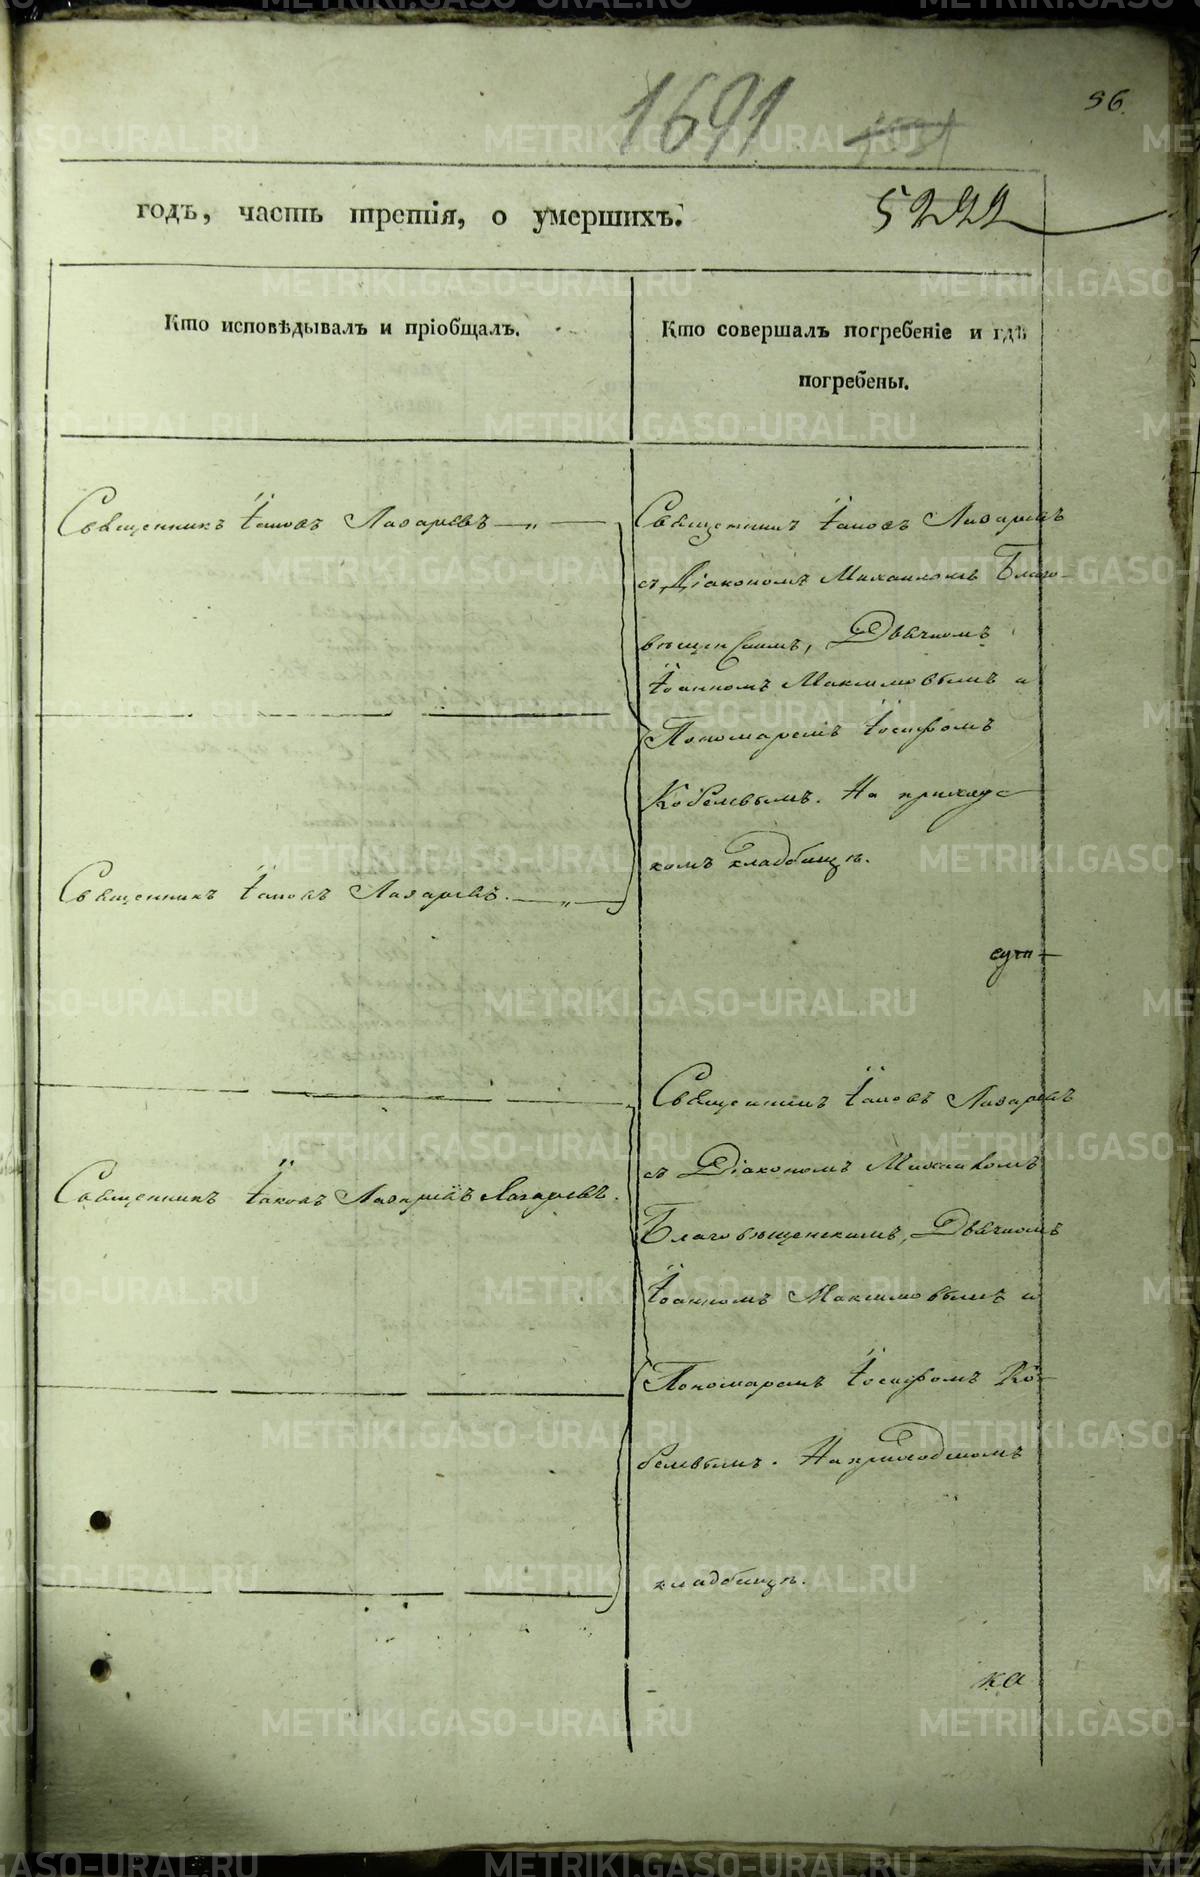 1691
56.
годъ, часть третія, о умершихъ.
5222
Кто исповѣдывалъ и пріобщалъ.
Кто совершалъ погребеніе и гдѣ
погребены.
Священникъ Їаковъ Лазаревъ — „ —
Священникъ Їаковъ Лазаревъ
съ Діакономъ Михаиломъ Благо-
вѣщенскимъ, Дьячкомъ
Їоанномъ Максимовымъ и
Пономаремъ Їосифомъ
Кобелевымъ. На приходс-
комъ кладбищѣ.
Священникъ Їаковъ Лазаревъ. — „ —
Священникъ Їаковъ Лазаревъ
съ Діакономъ Михаиломъ
Священникъ Їаковъ Лазаревъ Лазаревъ.
Благовѣщенскимъ, Дьячкомъ
Їоанномъ Максимовымъ и
Пономаремъ Їосифомъ Ко-
белевымъ. На приходскомъ
кладбищѣ.
ка
METRIKI.GASO-URAL.RU